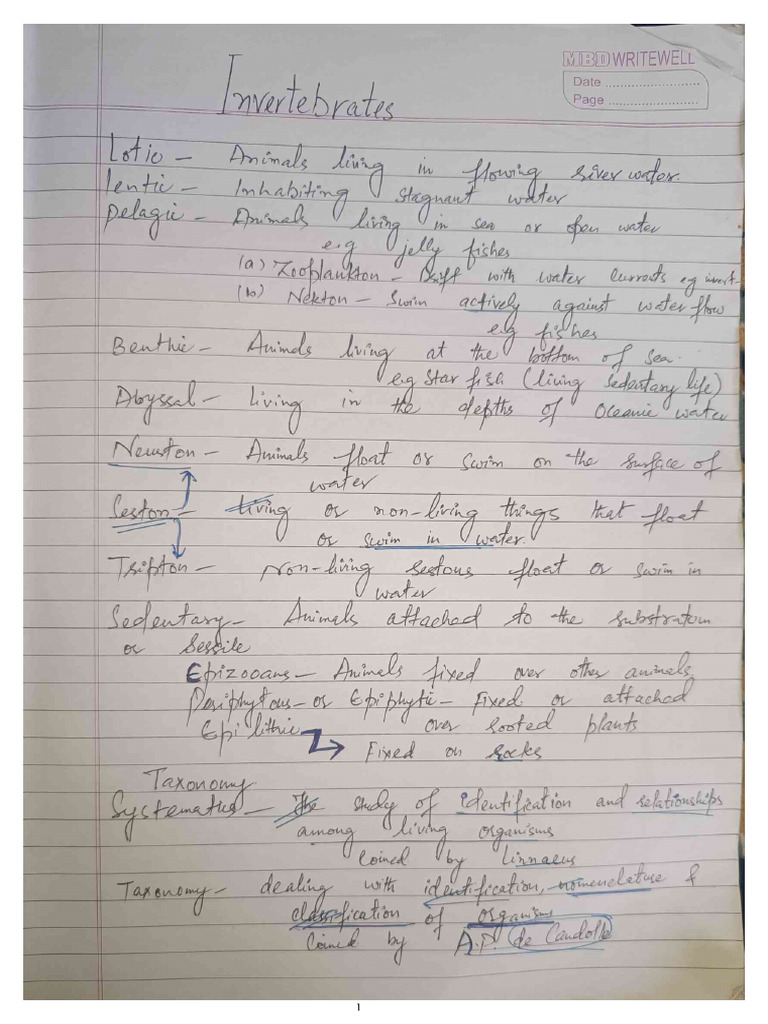 MBD WRITEWELL
Date ........................
Page ........................
Invertebrates
Lotic - Animals living in flowing river water.
lentic - Inhabiting stagnant water
Pelagic - Animals living in sea or open water
e.g jelly fishes
(a) Zooplankton - Drift with water currents e.g invert-
(b) Nekton - Swim actively against water flow
e.g fishes
Benthic - Animals living at the bottom of sea.
e.g Star fish (living sedentary life)
Abyssal - living in the depths of oceanic water
Neuston - Animals float or swim on the surface of
water
Seston - living or non-living things that float
or swim in water.
Tripton - Non-living sestons float or swim in
water
Sedentary - Animals attached to the substratum
or Sessile
Epizooans - Animals fixed over other animals
Periphytons - or Epiphytic - Fixed or attached
over rooted plants
Epi lithic
Fixed on rocks
Taxonomy
Systematics - The study of identification and relationships
among living organisms
Coined by Linnaeus
Taxonomy - dealing with identification, nomenclature &
classification of organisms
Coined by A.P. de Candolle
1